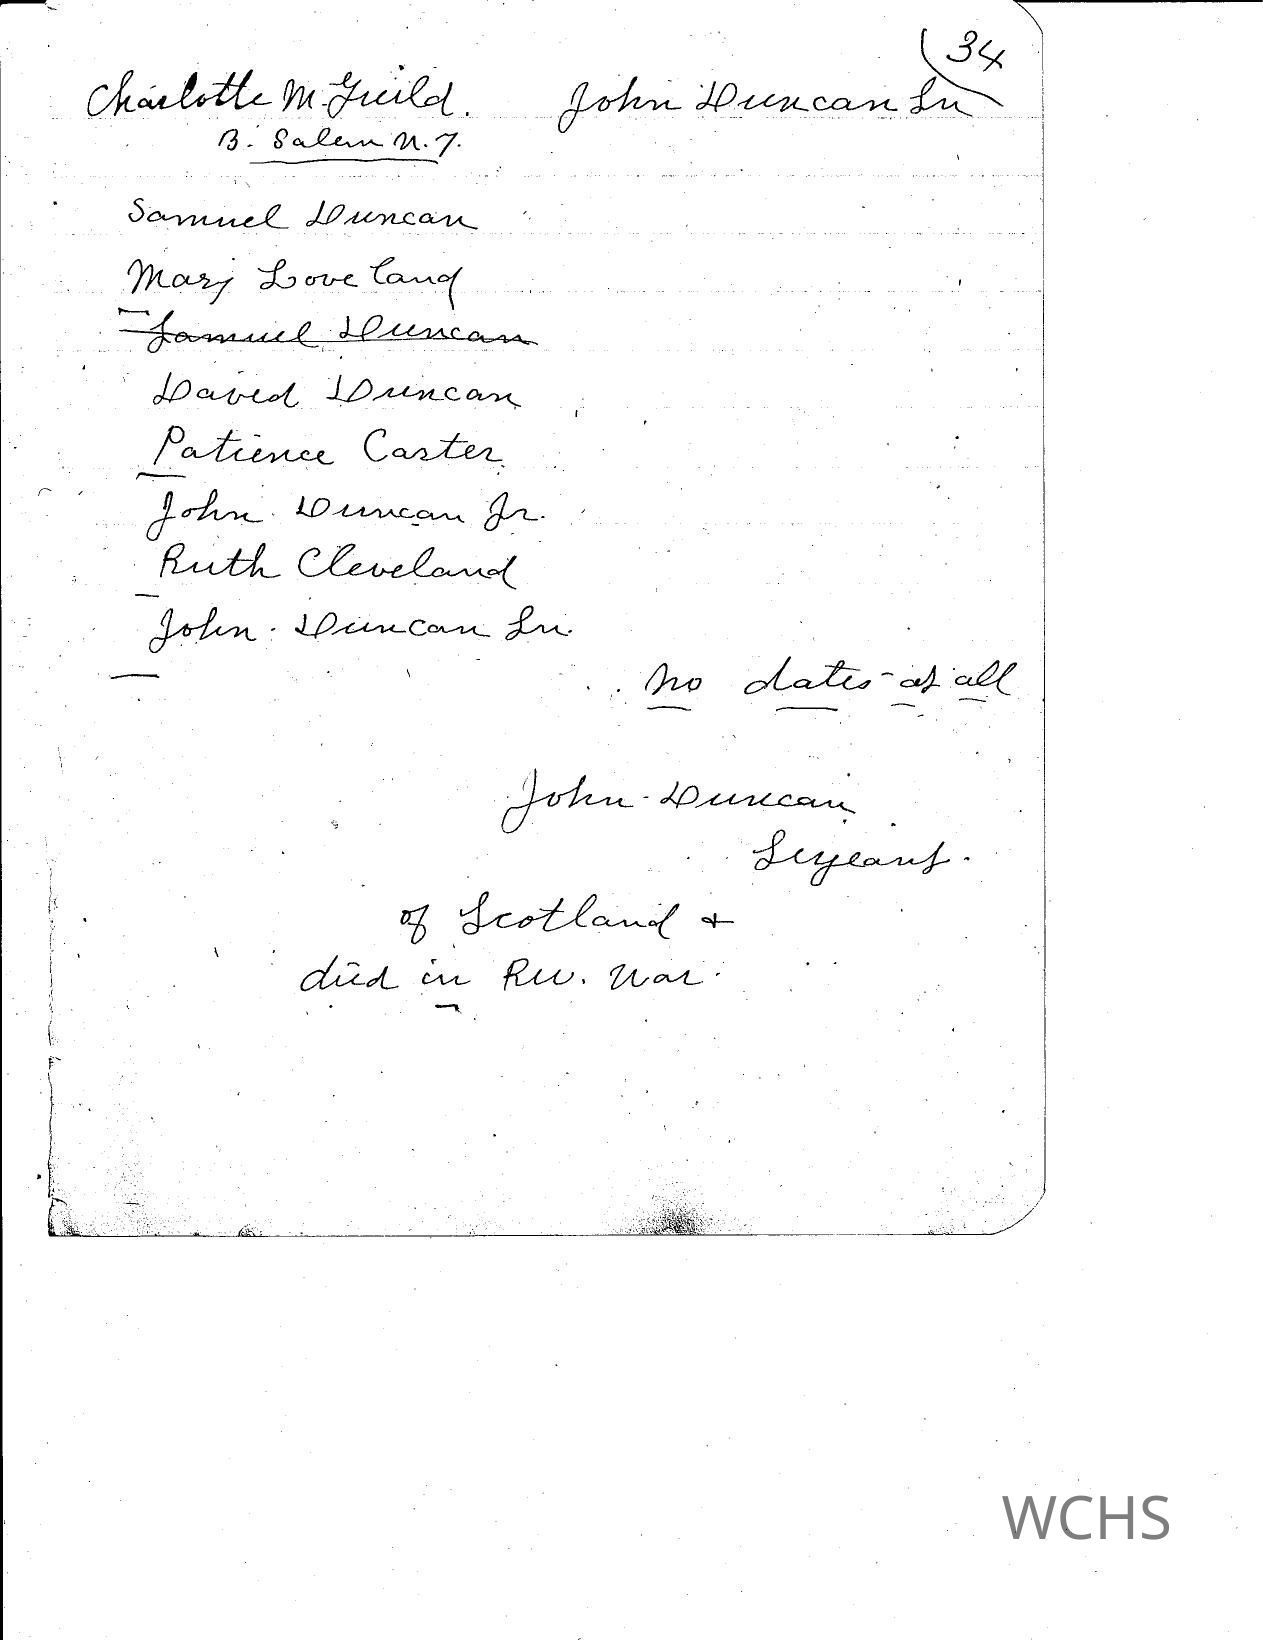 34
Charlotte M. Guild. John Duncan Sr
B. Salem N.Y.
Samuel Duncan
Mary Loveland
Samuel Duncan
David Duncan
Patience Carter
John Duncan Jr.
Ruth Cleveland
John Duncan Sr.
no dates at all
John Duncan
Sergeant.
of Scotland +
died in Rev. War.
WCHS